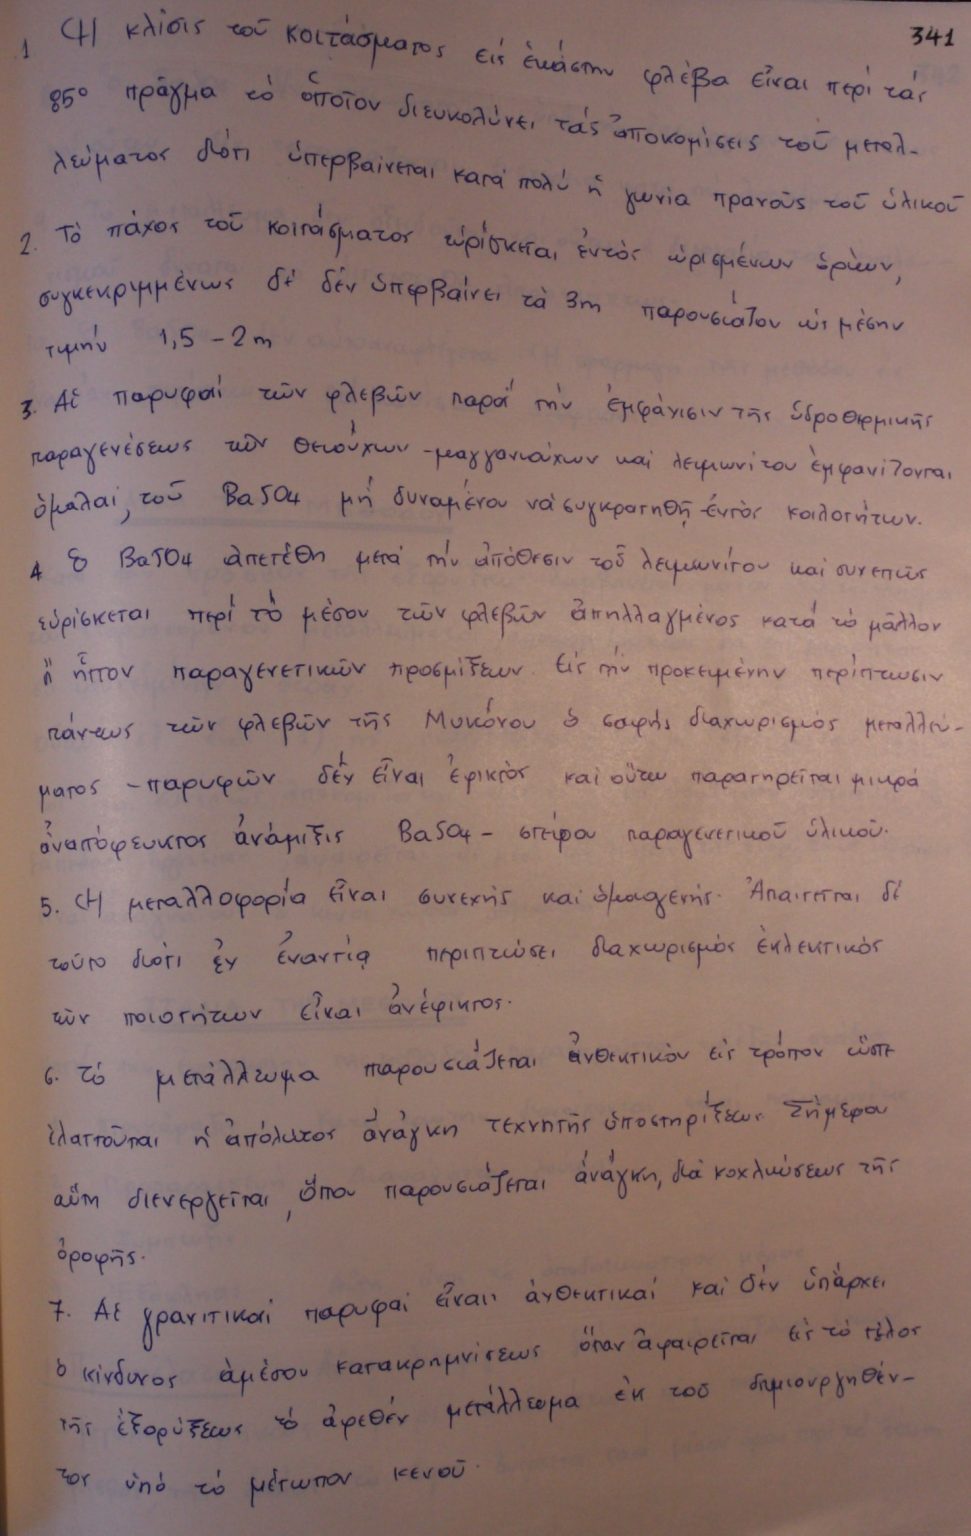 341
1 Ἡ κλίσις τοῦ κοιτάσματος εἰς ἑκάστην φλέβα εἶναι περί τάς
85° πρᾶγμα τὸ ὁποῖον διευκολύνει τάς ἀποκομίσεις τοῦ μεταλ-
λεύματος διότι ὑπερβαίνεται κατά πολύ ἡ γωνία πρανοῦς τοῦ ὑλικοῦ
2. Τὸ πάχος τοῦ κοιτάσματος εὑρίσκεται ἐντὸς ὡρισμένων ὁρίων,
συγκεκριμμένως δέ δέν ὑπερβαίνει τὰ 3m παρουσιάζον ὡς μέσην
τιμήν 1,5 - 2m
3. Αἱ παρυφαί τῶν φλεβῶν παρά τήν ἐμφάνισιν τῆς ὑδροθερμικῆς
παραγενέσεως τῶν θειούχων - μαγγανιούχων καί λειμωνίτου ἐμφανίζονται
ὁμαλαί, τοῦ BaSO4 μή δυναμένου νά συγκρατηθῇ ἐντὸς κοιλοτήτων.
4 Ὁ BaSO4 ἀπετέθη μετά τήν ἀπόθεσιν τοῦ λειμωνίτου καί συνεπῶς
εὑρίσκεται περί τὸ μέσον τῶν φλεβῶν ἀπηλλαγμένος κατά τὸ μᾶλλον
ἤ ἧττον παραγενετικῶν προσμίξεων. Εἰς τήν προκειμένην περίπτωσιν
πάντως τῶν φλεβῶν τῆς Μυκόνου ὁ σαφής διαχωρισμός μεταλλεύ-
ματος - παρυφῶν δέν εἶναι ἐφικτὸς καί οὕτω παρατηρεῖται μικρά
ἀναπόφευκτος ἀνάμιξις BaSO4 - στείρου παραγενετικοῦ ὑλικοῦ.
5. Ἡ μεταλλοφορία εἶναι συνεχής καί ὁμοιογενής. Ἀπαιτεῖται δέ
τοῦτο διότι ἐν ἐναντίᾳ περιπτώσει διαχωρισμὸς ἐκλεκτικὸς
τῶν ποιοτήτων εἶναι ἀνέφικτος.
6. τὸ μετάλλευμα παρουσιάζεται ἀνθεκτικὸν εἰς τρόπον ὥστε
ἐλαττοῦται ἡ ἀπόλυτος ἀνάγκη τεχνητῆς ὑποστηρίξεως. Σήμερον
αὕτη διενεργεῖται, ὅπου παρουσιάζεται ἀνάγκη, διά κοχλιώσεως τῆς
ὀροφῆς.
7. Αἱ γρανιτικαί παρυφαί εἶναι ἀνθεκτικαί καί δέν ὑπάρχει
ὁ κίνδυνος ἀμέσου κατακρημνίσεως ὅταν ἀφαιρεῖται εἰς τὸ τέλος
τῆς ἐξορύξεως τὸ ἀφεθέν μετάλλευμα ἐκ τοῦ δημιουργηθέν-
τος ὑπὸ τὸ μέτωπον κενοῦ.